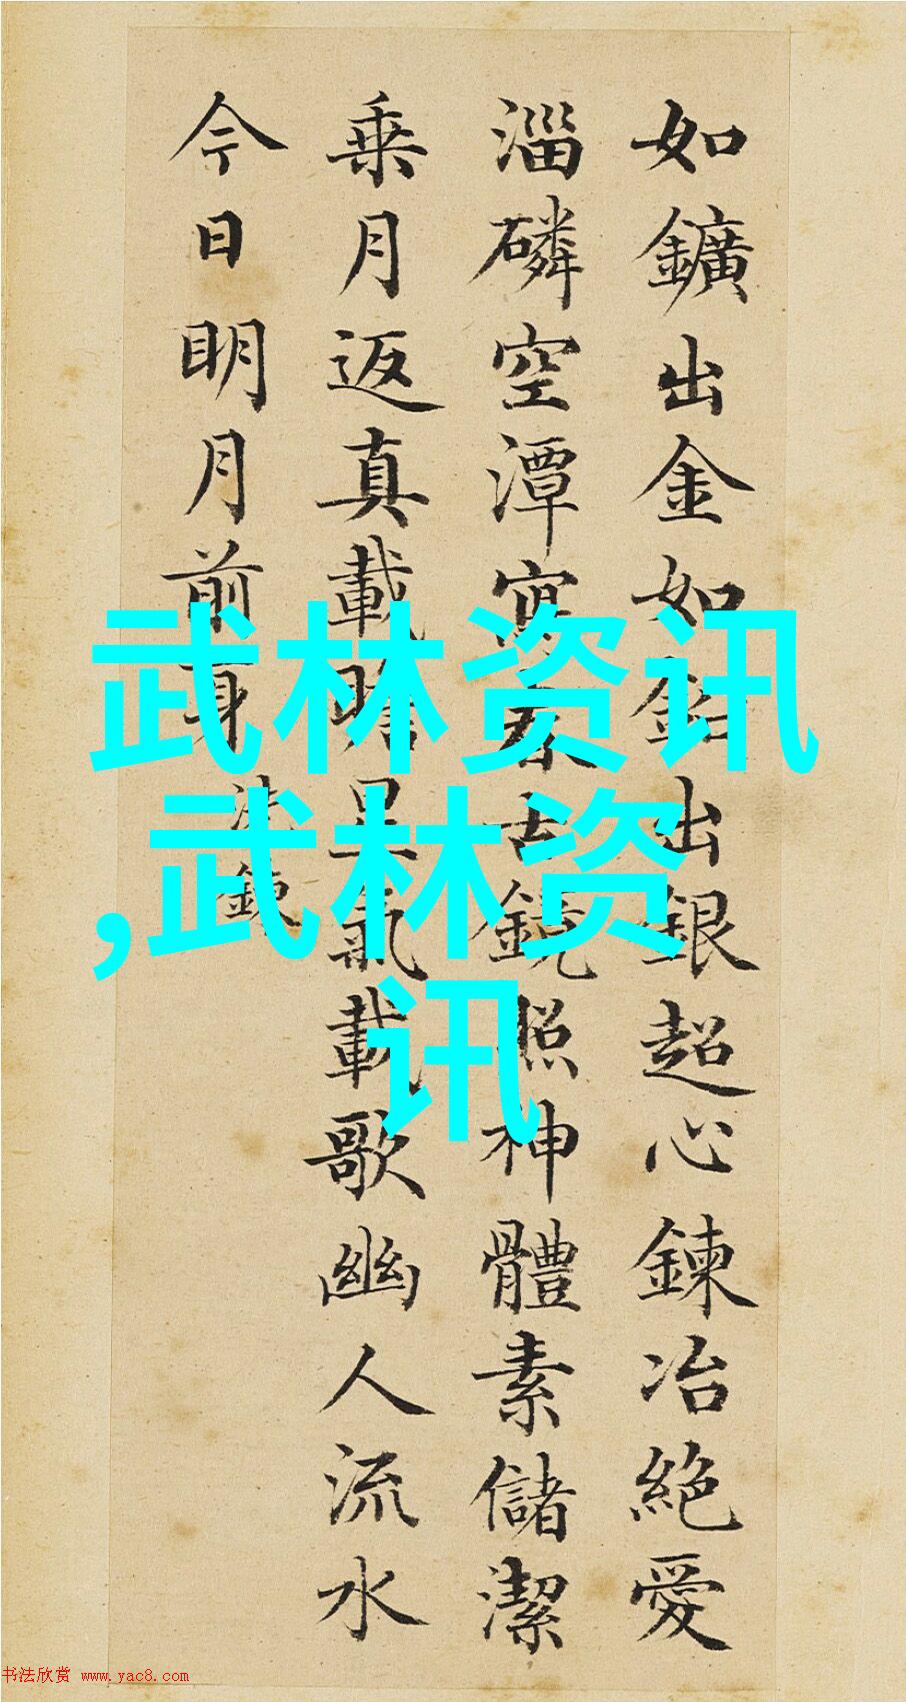 如鑛出金如鉛出銀超心鍊冶絕愛
淄磷空潭寫春古鏡照神體素儲潔
乗月返真載瞻星氣載歌幽人流水
今日明月前身 洗鍊
武林资讯
,武林资
讯
书法欣赏 www.yac8.com